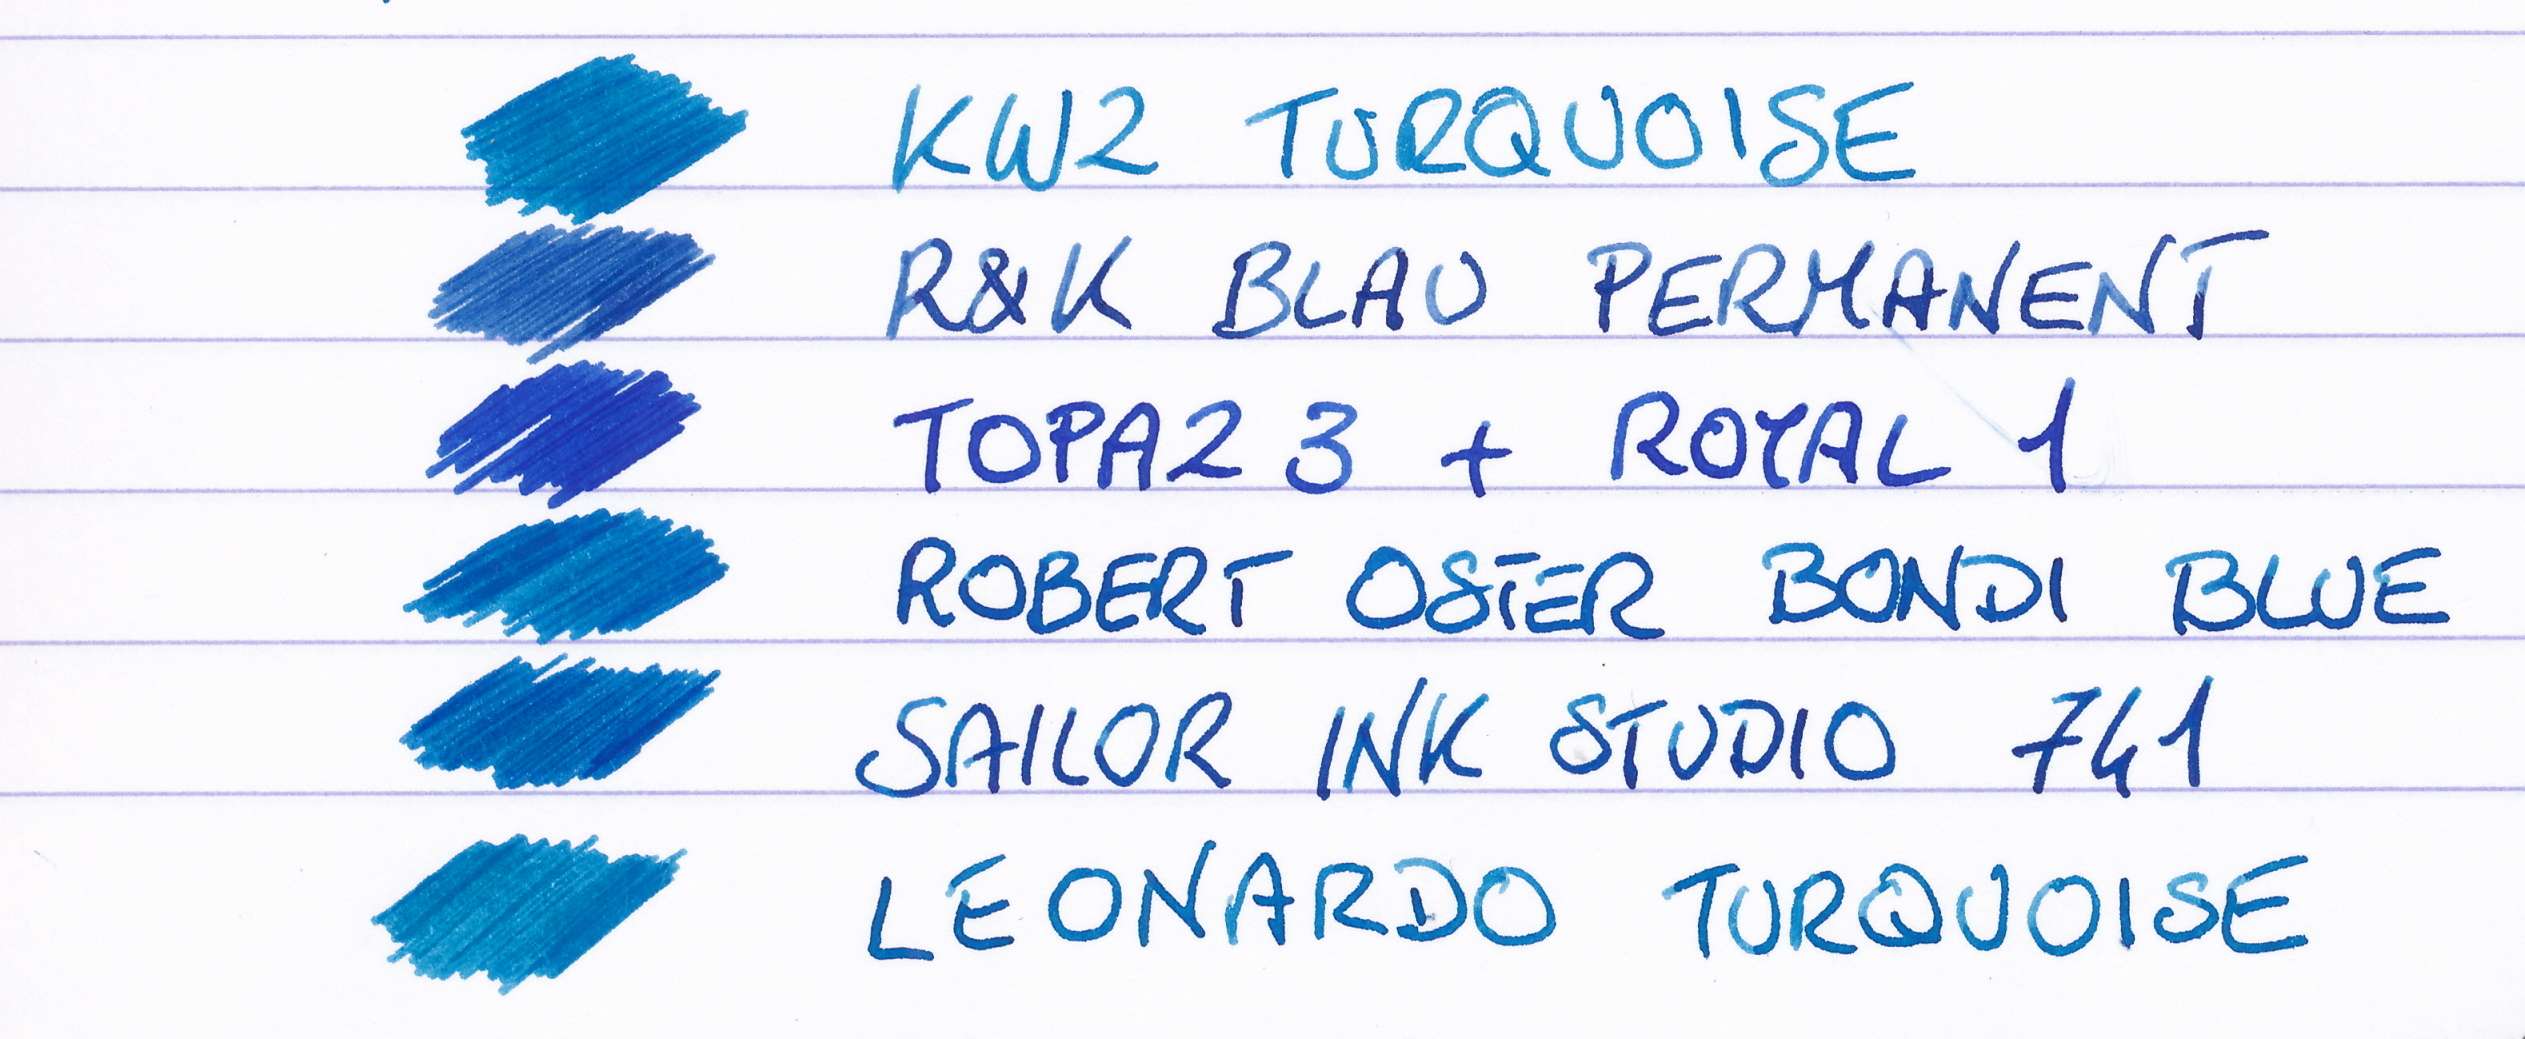 KWZ TURQUOISE
R&K BLAU PERMANENT
TOPAZ 3 + ROYAL 1
ROBERT OSTER BONDI BLUE
SAILOR INK STUDIO 741
LEONARDO TURQUOISE